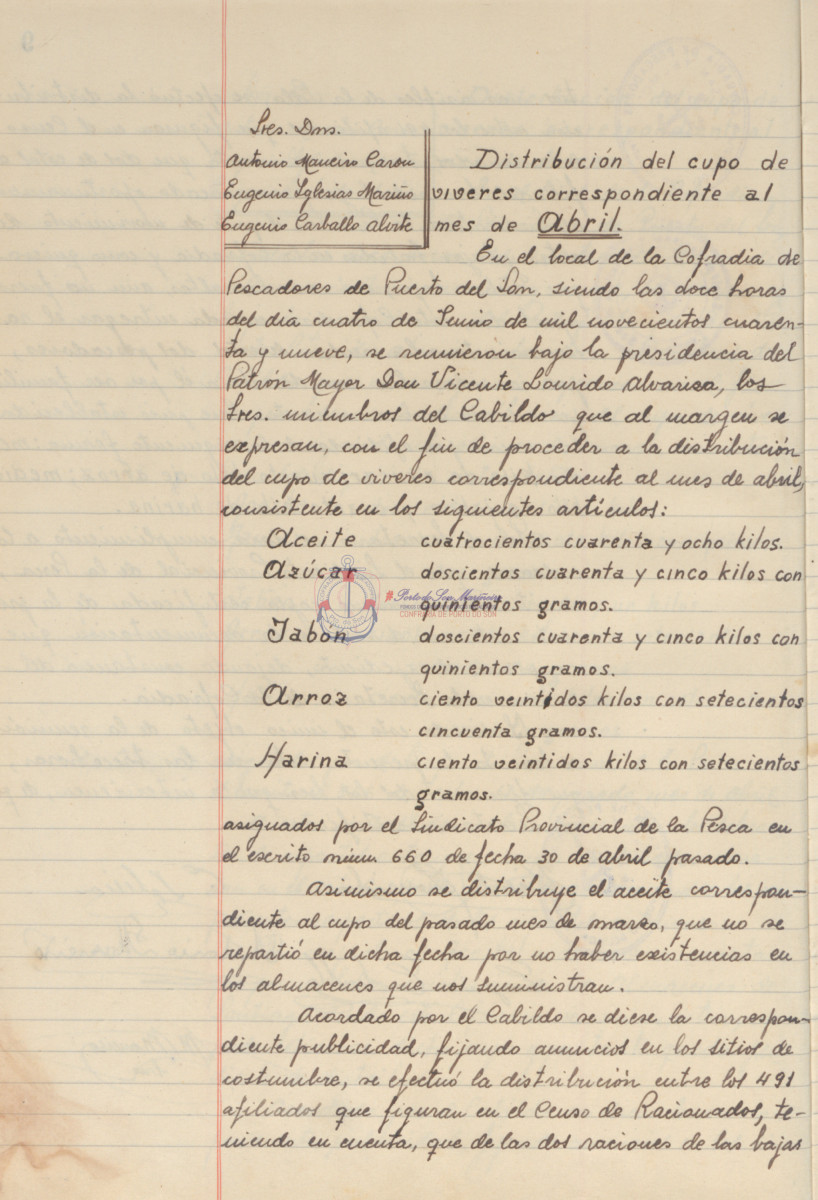 Sres. Dns.
Antonio Maneiro Carou
Eugenio Iglesias Mariño
Eugenio Carballo Alvite
Distribución del cupo de
viveres correspondiente al
mes de Abril.
En el local de la Cofradia de
Pescadores de Puerto del Son, siendo las doce horas
del dia cuatro de Junio de mil novecientos cuaren-
ta y nueve, se reunieron bajo la presidencia del
Patrón Mayor Don Vicente Lourido Alvariza, los
Sres. miembros del Cabildo que al margen se
expresan, con el fin de proceder a la distribución
del cupo de viveres correspondiente al mes de abril,
consistente en los siguientes artículos:
Aceite cuatrocientos cuarenta y ocho kilos.
Azúcar doscientos cuarenta y cinco kilos con
quinientos gramos.
Jabón doscientos cuarenta y cinco kilos con
quinientos gramos.
Arroz ciento veintidos kilos con setecientos
cincuenta gramos.
Harina ciento veintidos kilos con setecientos
gramos.
asignados por el Sindicato Provincial de la Pesca en
el escrito núm. 660 de fecha 30 de abril pasado.
Asimismo se distribuye el aceite correspon-
diente al cupo del pasado mes de marzo, que no se
repartió en dicha fecha por no haber existencias en
los almacenes que nos suministran.
Acordado por el Cabildo se diese la correspon-
diente publicidad, fijando anuncios en los sitios de
costumbre, se efectuó la distribución entre los 491
afiliados que figuran en el Censo de Racionados, te-
niendo en cuenta, que de las dos raciones de las bajas
Porto do Son Mariñeiro
CONFRARÍA DE PORTO DO SON